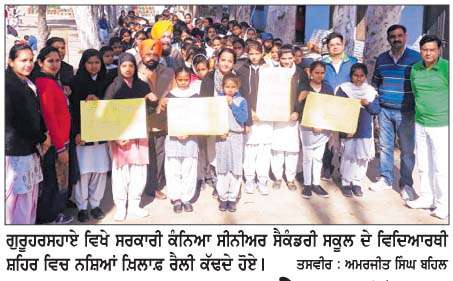 ਗੁਰੂਹਰਸਹਾਏ ਵਿਖੇ ਸਰਕਾਰੀ ਕੰਨਿਆ ਸੀਨੀਅਰ ਸੈਕੰਡਰੀ ਸਕੂਲ ਦੇ ਵਿਦਿਆਰਥੀ
ਸ਼ਹਿਰ ਵਿਚ ਨਸ਼ਿਆਂ ਖ਼ਿਲਾਫ਼ ਰੈਲੀ ਕੱਢਦੇ ਹੋਏ। ਤਸਵੀਰ : ਅਮਰਜੀਤ ਸਿੰਘ ਬਹਿਲ